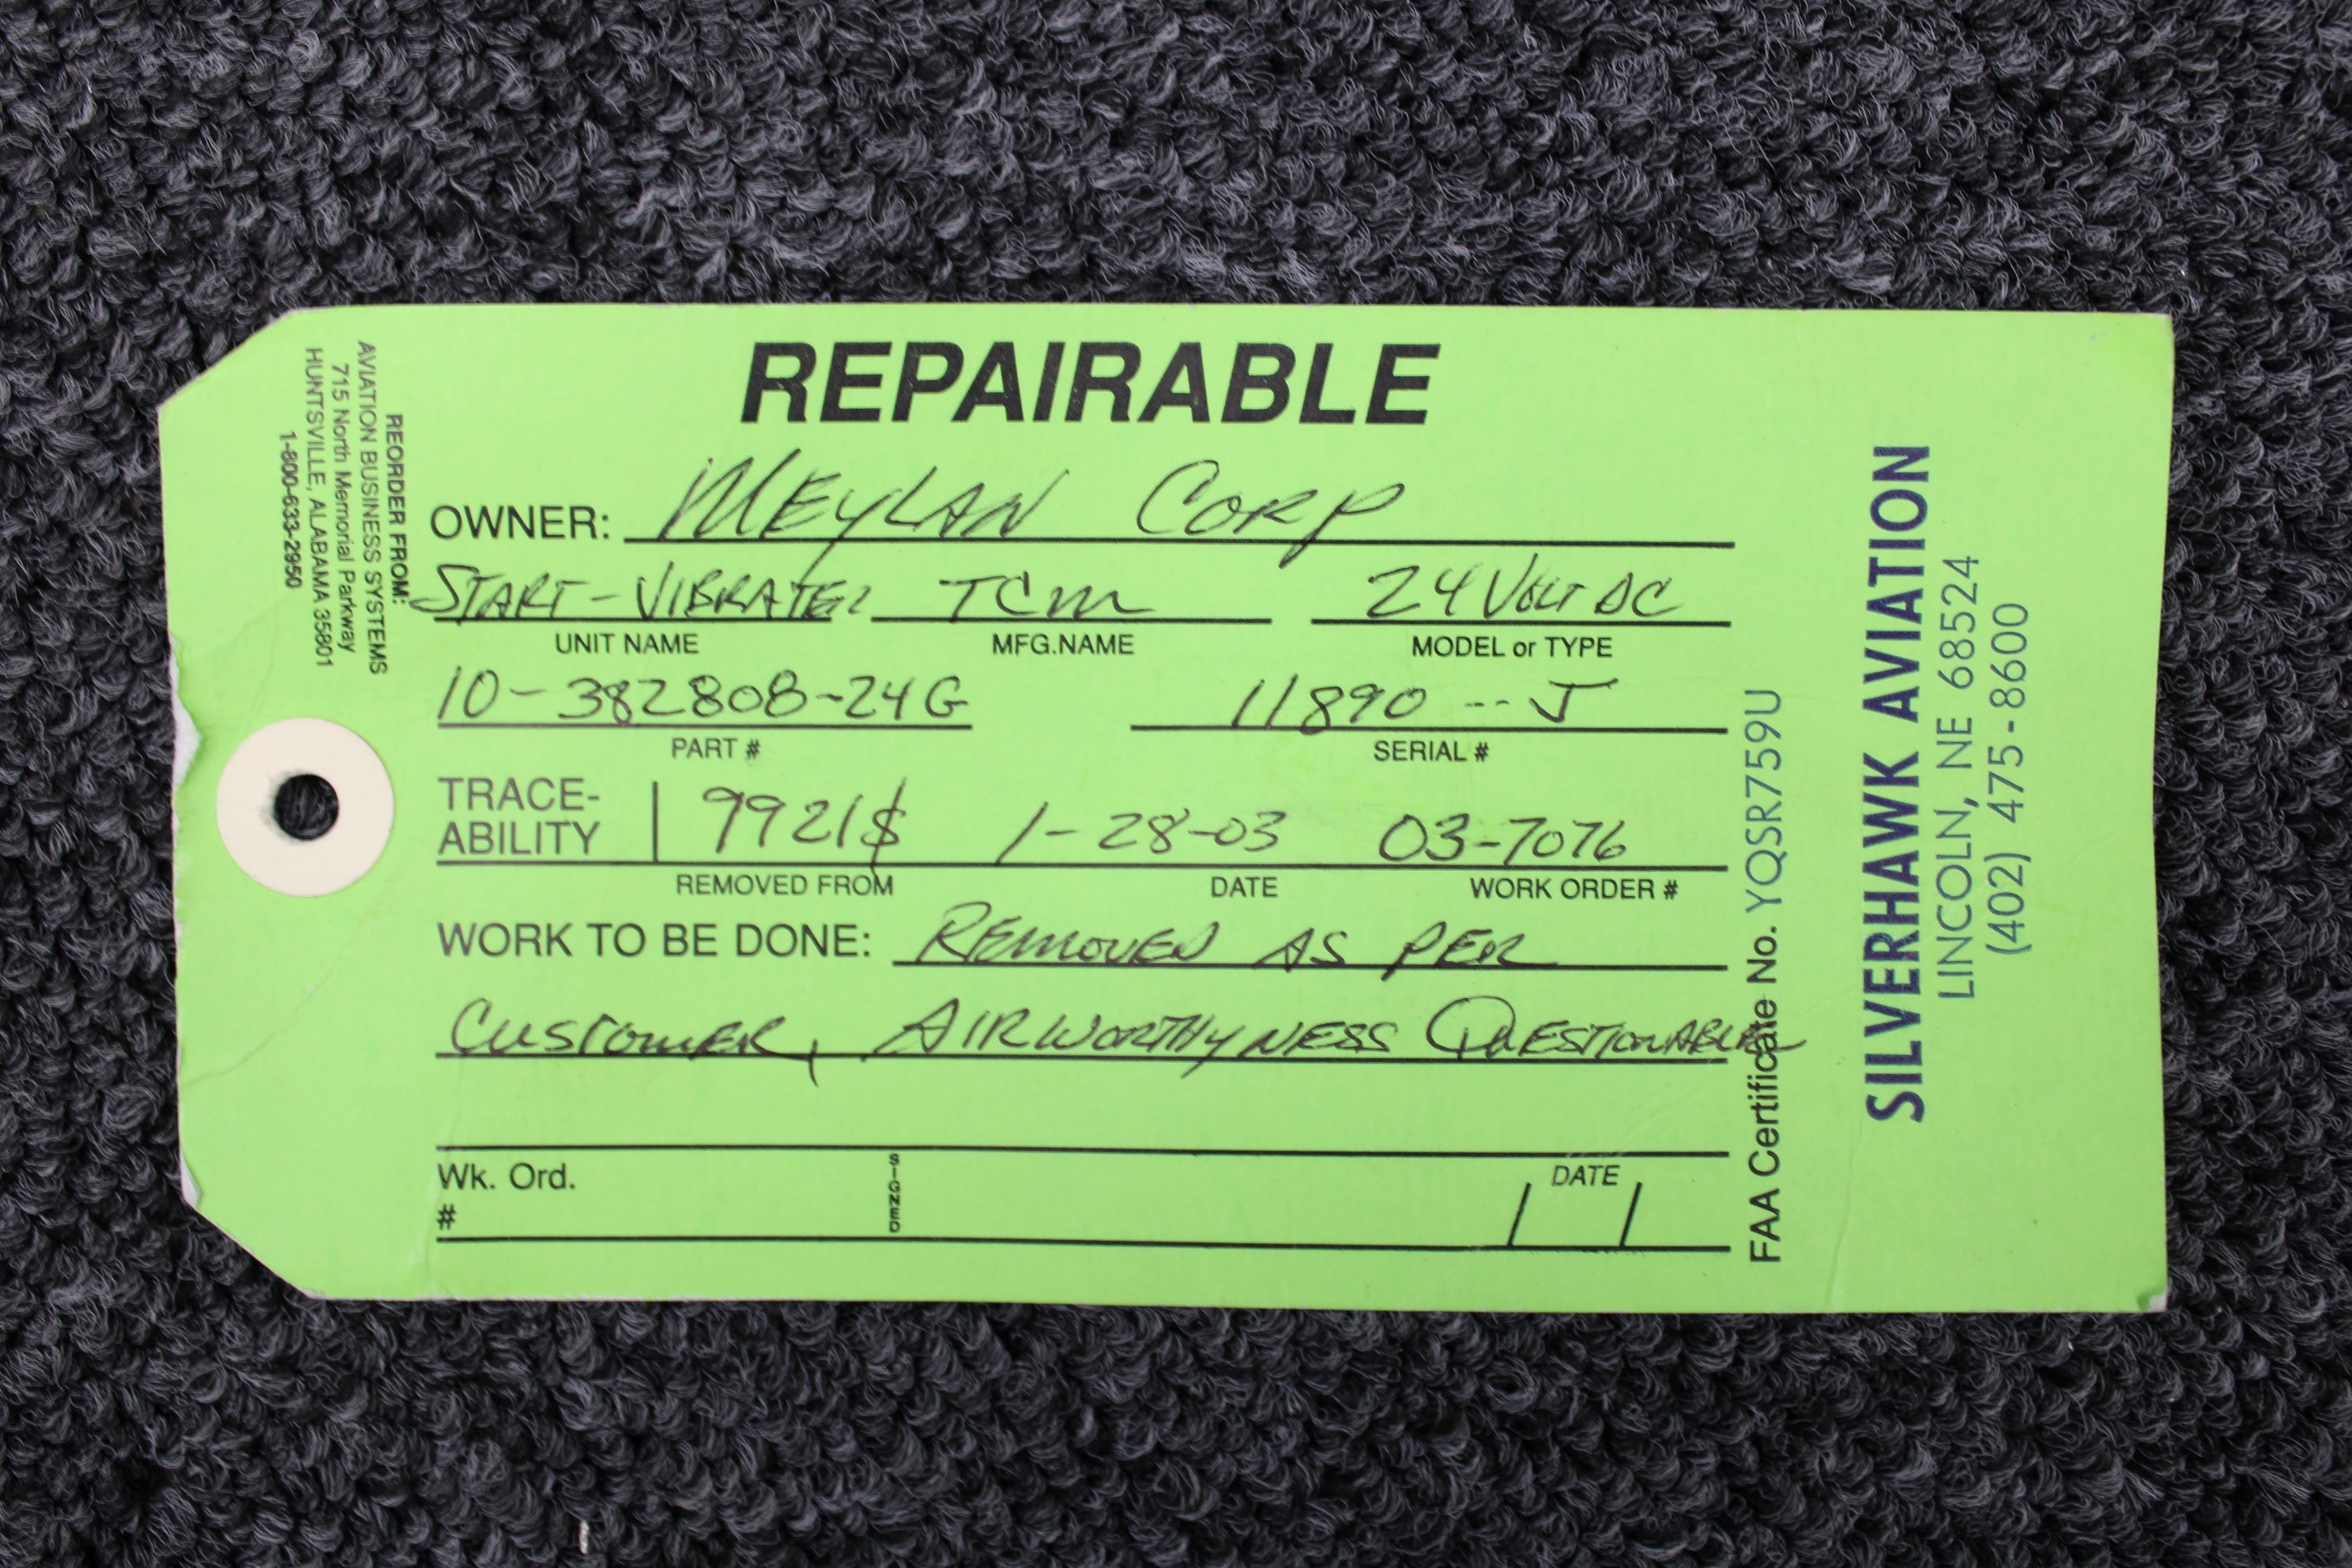 REPAIRABLE
OWNER: MEYLAN CORP
START-VIBRATER TCM 24 VOLT DC
UNIT NAME MFG.NAME MODEL or TYPE
10-382808-24G 11890---J
PART # SERIAL #
TRACE-
ABILITY 9921$ 1-28-03 03-7076
REMOVED FROM DATE WORK ORDER #
WORK TO BE DONE: REMOVED AS PER
CUSTOMER, AIRWORTHYNESS QUESTIONABLE
Wk. Ord.
#
SIGNED
DATE
/ /
FAA Certificate No. YQSR7559U
SILVERHAWK AVIATION
LINCOLN, NE 68524
(402) 475-8600
REORDER FROM:
AVIATION BUSINESS SYSTEMS
715 North Memorial Parkway
HUNTSVILLE, ALABAMA 35801
1-800-633-2950